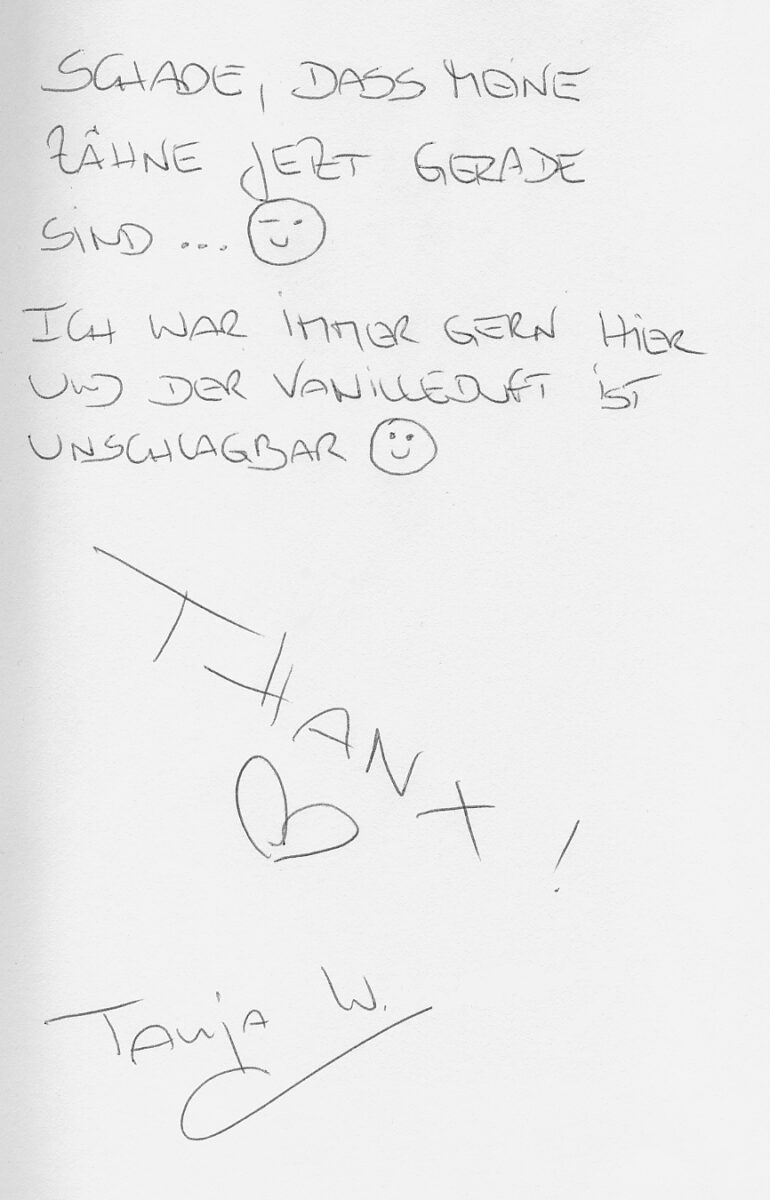 SCHADE, DASS MEINE
ZÄHNE JETZT GERADE
SIND ...
ICH WAR IMMER GERN HIER
UND DER VANILLEDUFT IST
UNSCHLAGBAR
THANX!
Tanja W.